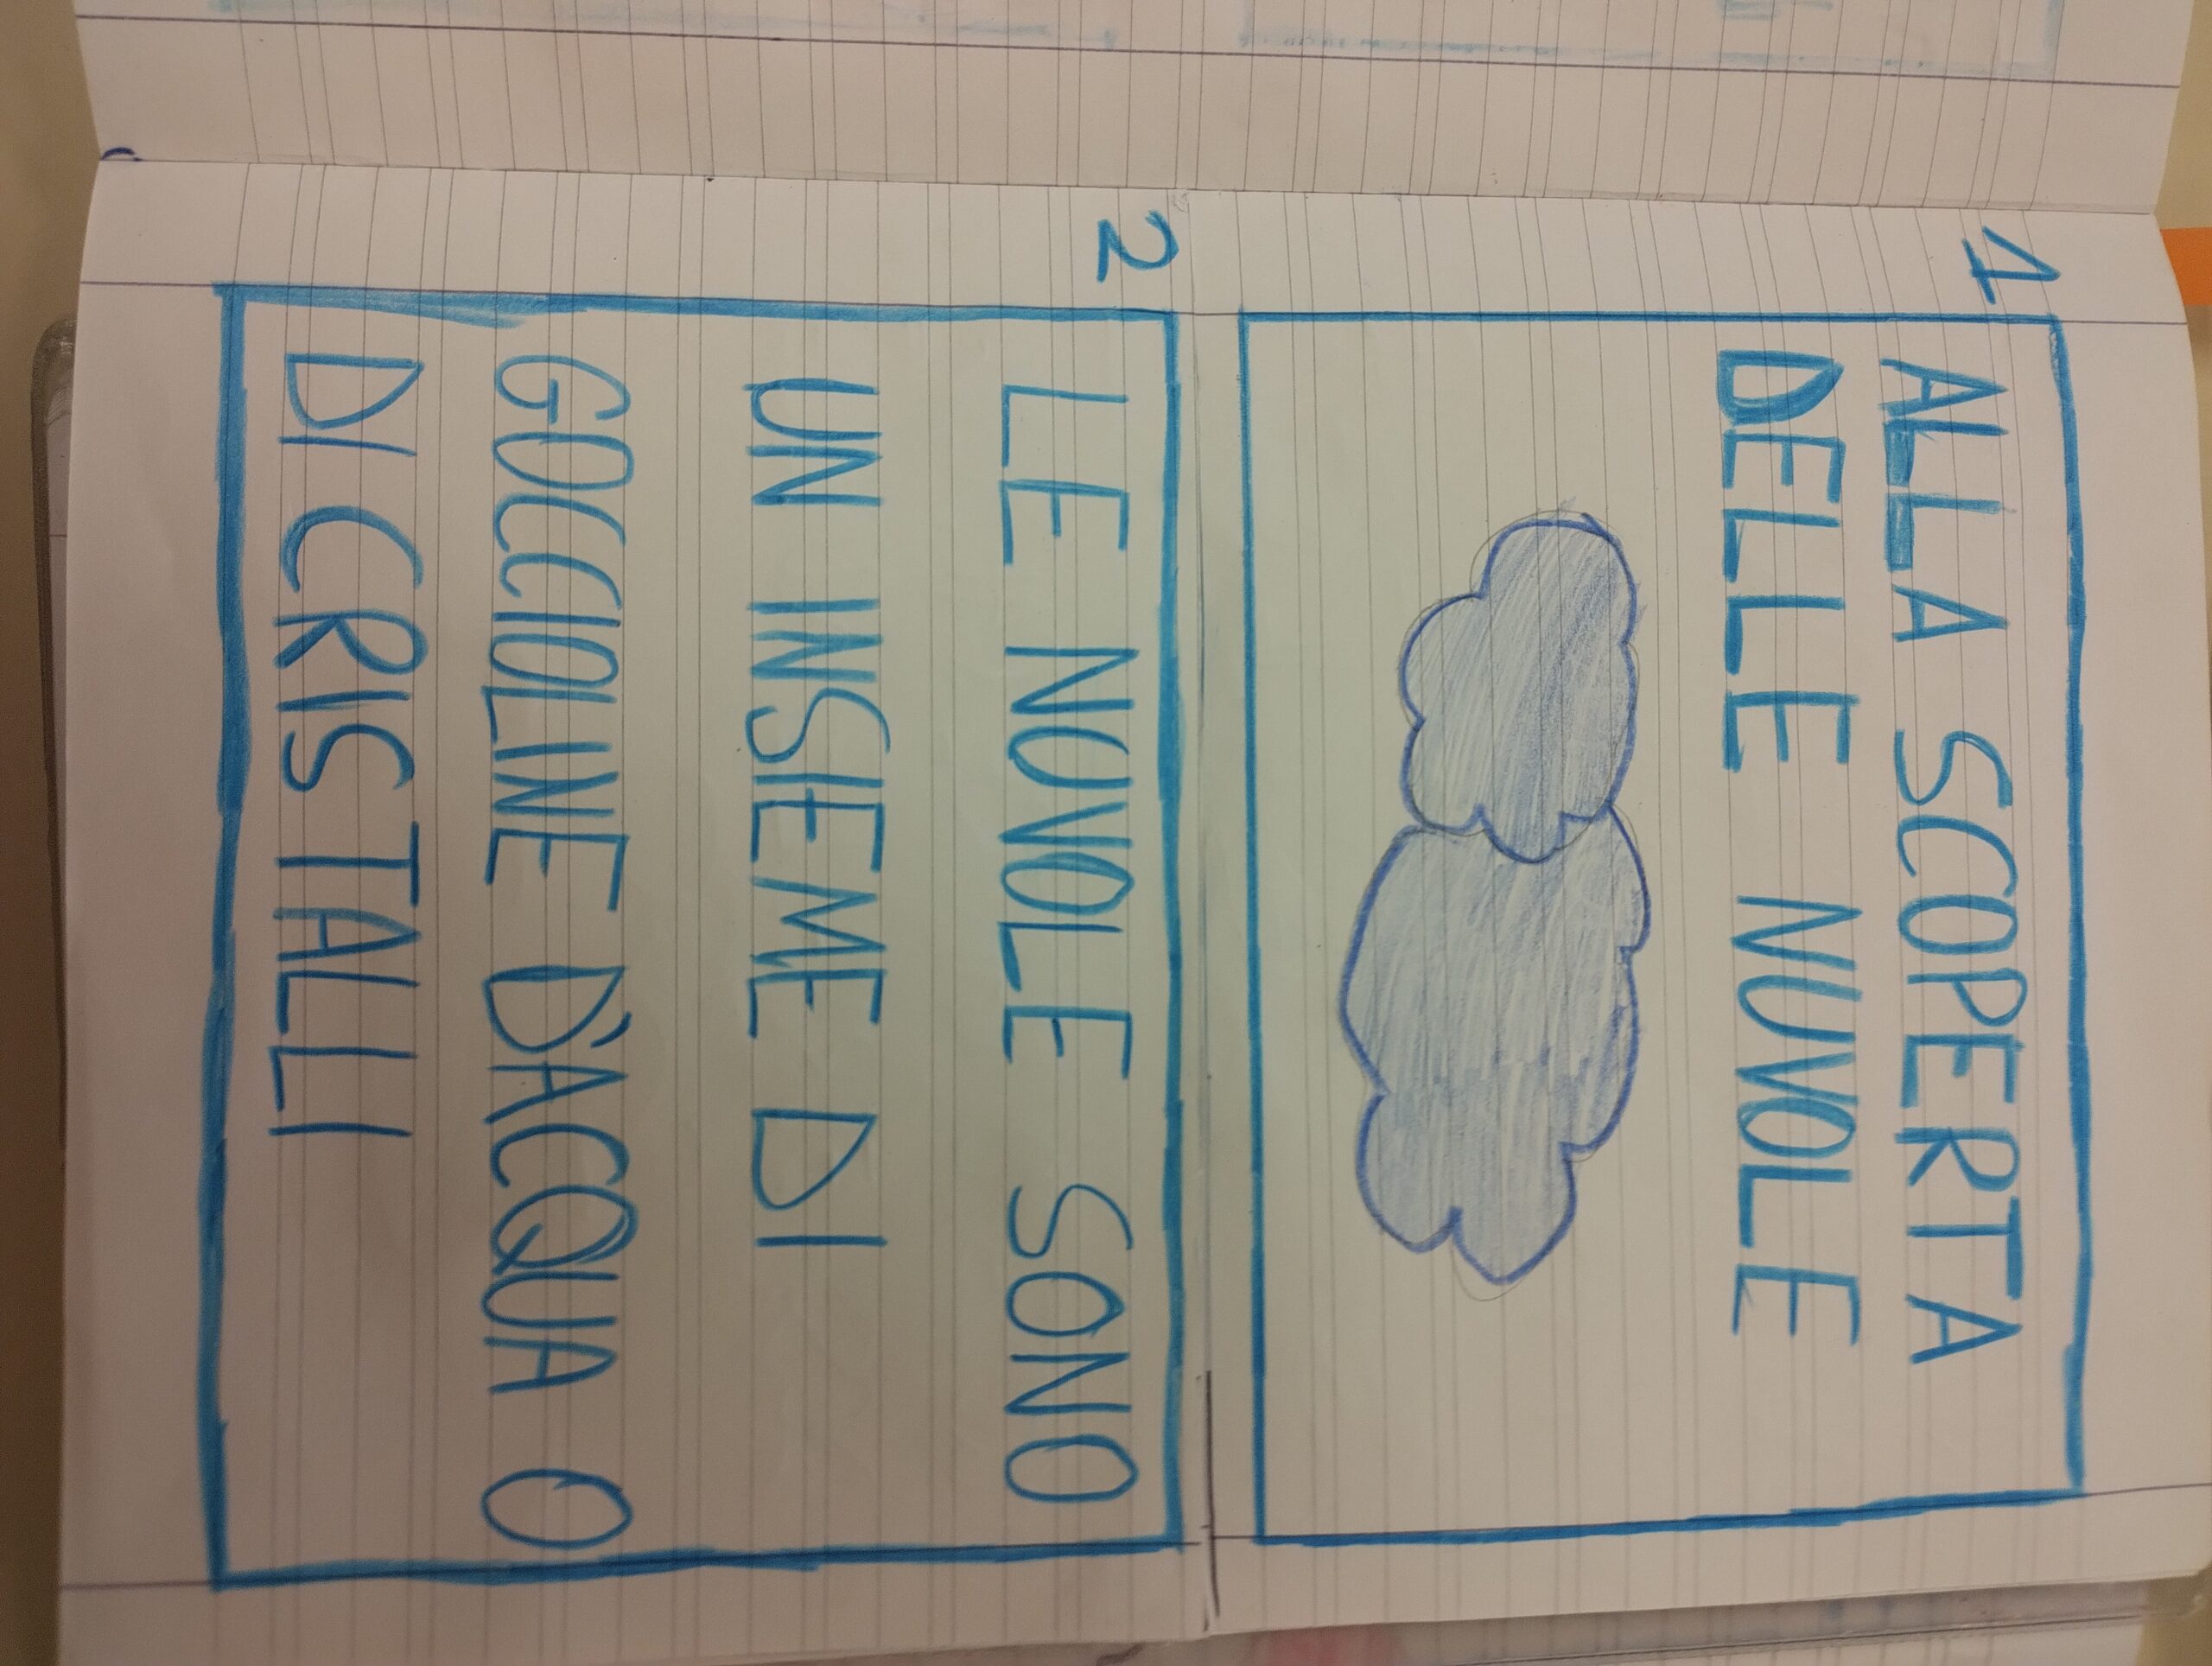 1
ALLA SCOPERTA
DELLE NUVOLE
2
LE NUVOLE SONO
UN INSIEME DI
GOCCIOLINE D'ACQUA O
DI CRISTALLI